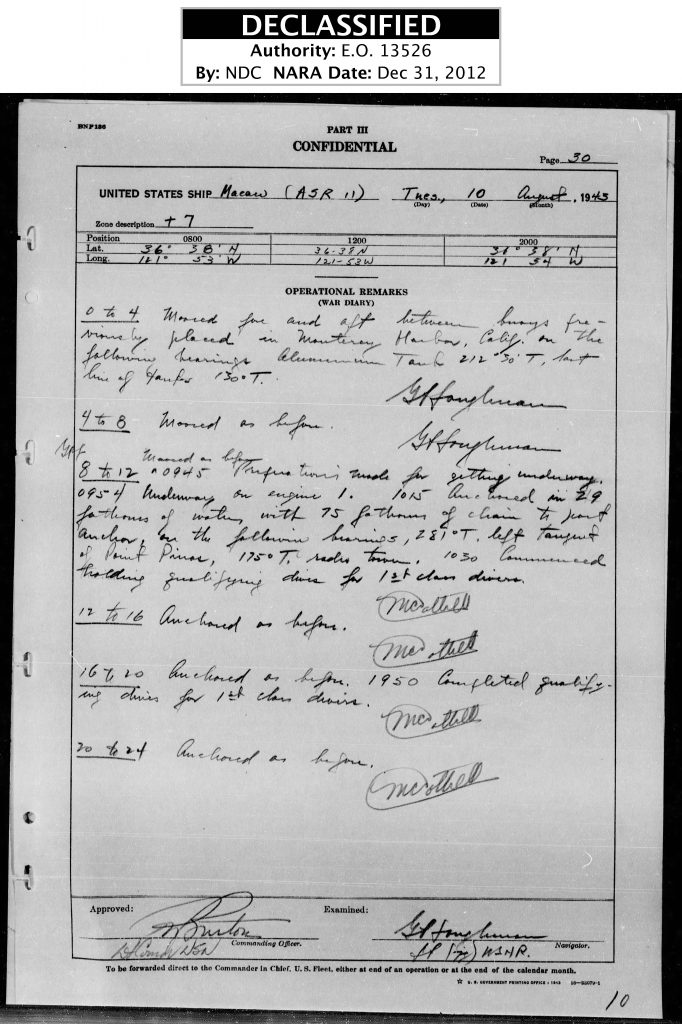 DECLASSIFIED
Authority: E.O. 13526
By: NDC NARA Date: Dec 31, 2012
BNP 136
PART III
CONFIDENTIAL
Page 30
UNITED STATES SHIP Macaw (ASR 11) Tues, 10 August, 1943
(Day) (Date) (Month)
Zone description +7
Position 0800 1200 2000
Lat. 36° 38' N 36-38N 36° 38' N
Long. 121° 53' W 121-53W 121 54 W
OPERATIONAL REMARKS
(WAR DIARY)
0 to 4 Moored fore and aft between buoys pre-
viously placed in Monterey Harbor, Calif. on the
following bearings Aluminum Tank 212°30'T, last
line of tanks 130°T.
4 to 8 Moored as before.
Moored as before
8 to 12 0945 Preparations made for getting underway.
0954 Underway on engine 1. 1015 Anchored in 29
fathoms of water with 75 fathoms of chain to port
anchor, on the following bearings, 281°T, left tangent
of Point Pinos, 175°T, radio tower. 1030 Commenced
holding qualifying dives for 1st class divers.
12 to 16 Anchored as before.
16 to 20 Anchored as before. 1950 Completed qualify-
ing dives for 1st class divers.
20 to 24 Anchored as before.
Approved: Examined:
Burton
Commanding Officer.
Lt (jg) USNR. Navigator.
To be forwarded direct to the Commander in Chief, U. S. Fleet, either at end of an operation or at the end of the calendar month.
☆ U. S. GOVERNMENT PRINTING OFFICE : 1943
10